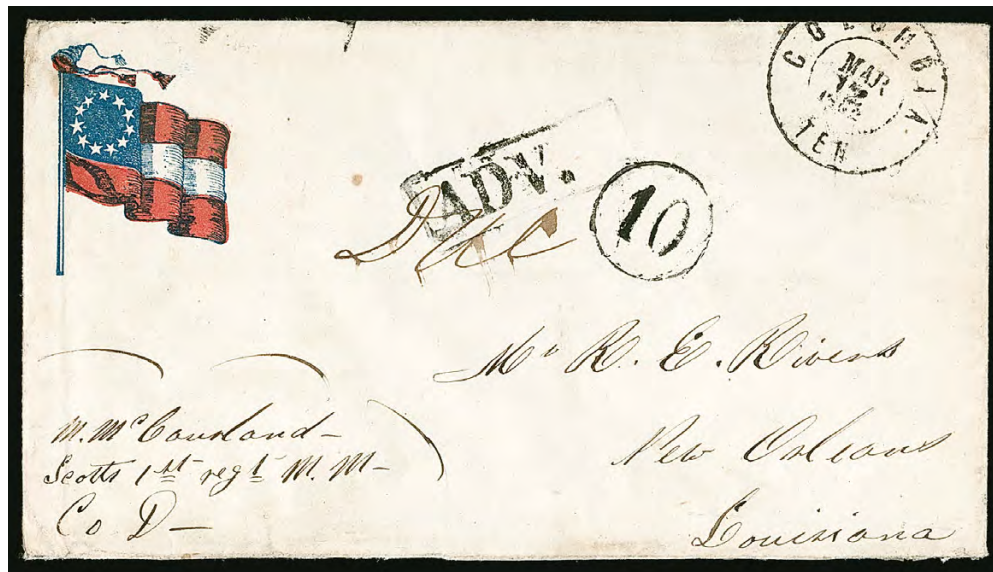 COLUMBIA
MAR
12
1862
TEN
ADV.
Due
10
Mr R. E. Rivers
New Orleans
Louisiana
M. McCausland-
Scotts 1st regt M. M-
Co D-